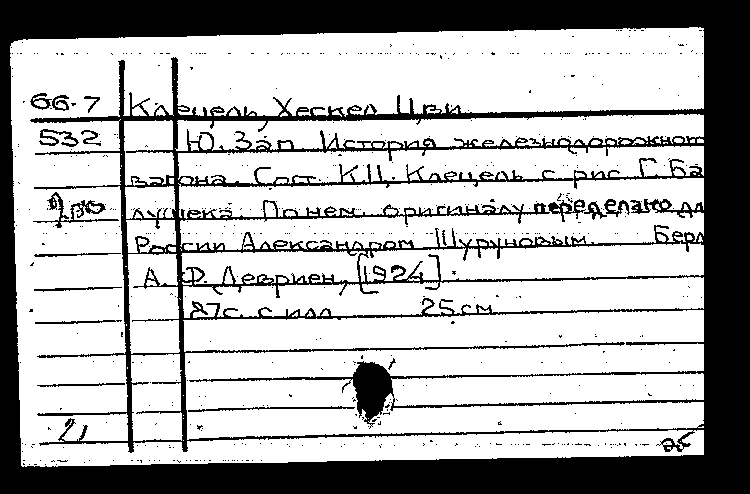 66-7 Клецель, Хескел Цви
532 Ю. Зап. История железнодорожног
вагона. Сост. К.Ц. Клецель с рис Г. Ба
лушека. По нем. оригиналу переделано дл
России Александром Шуруновым. Берл
А. Ф. Девриен, [1924].
87с. с илл. 25 см
21